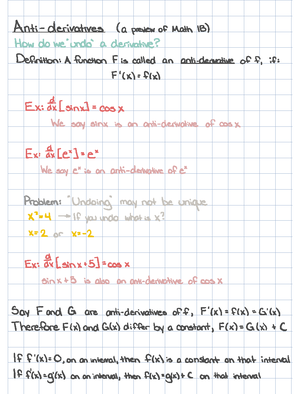 Anti-derivatives (a preview of Math 1B)
How do we "undo" a derivative?
Definition: A function F is called an anti-derivative of f, if:
F'(x) = f(x)
Ex: d/dx [sinx] = cos x
We say sinx is an anti-derivative of cosx
Ex: d/dx [eˣ] = eˣ
We say eˣ is an anti-derivative of eˣ
Problem: "Undoing" may not be unique
x² = 4 → If you undo what is x?
x = 2 or x = -2
Ex: d/dx [sinx + 5] = cos x
sinx + 5 is also an anti-derivative of cosx
Say F and G are anti-derivatives of f, F'(x) = f(x) = G'(x)
Therefore F(x) and G(x) differ by a constant, F(x) = G(x) + C
If f'(x) = 0, on an interval, then f(x) is a constant on that interval
If f'(x) = g'(x) on an interval, then f(x) = g(x) + C on that interval